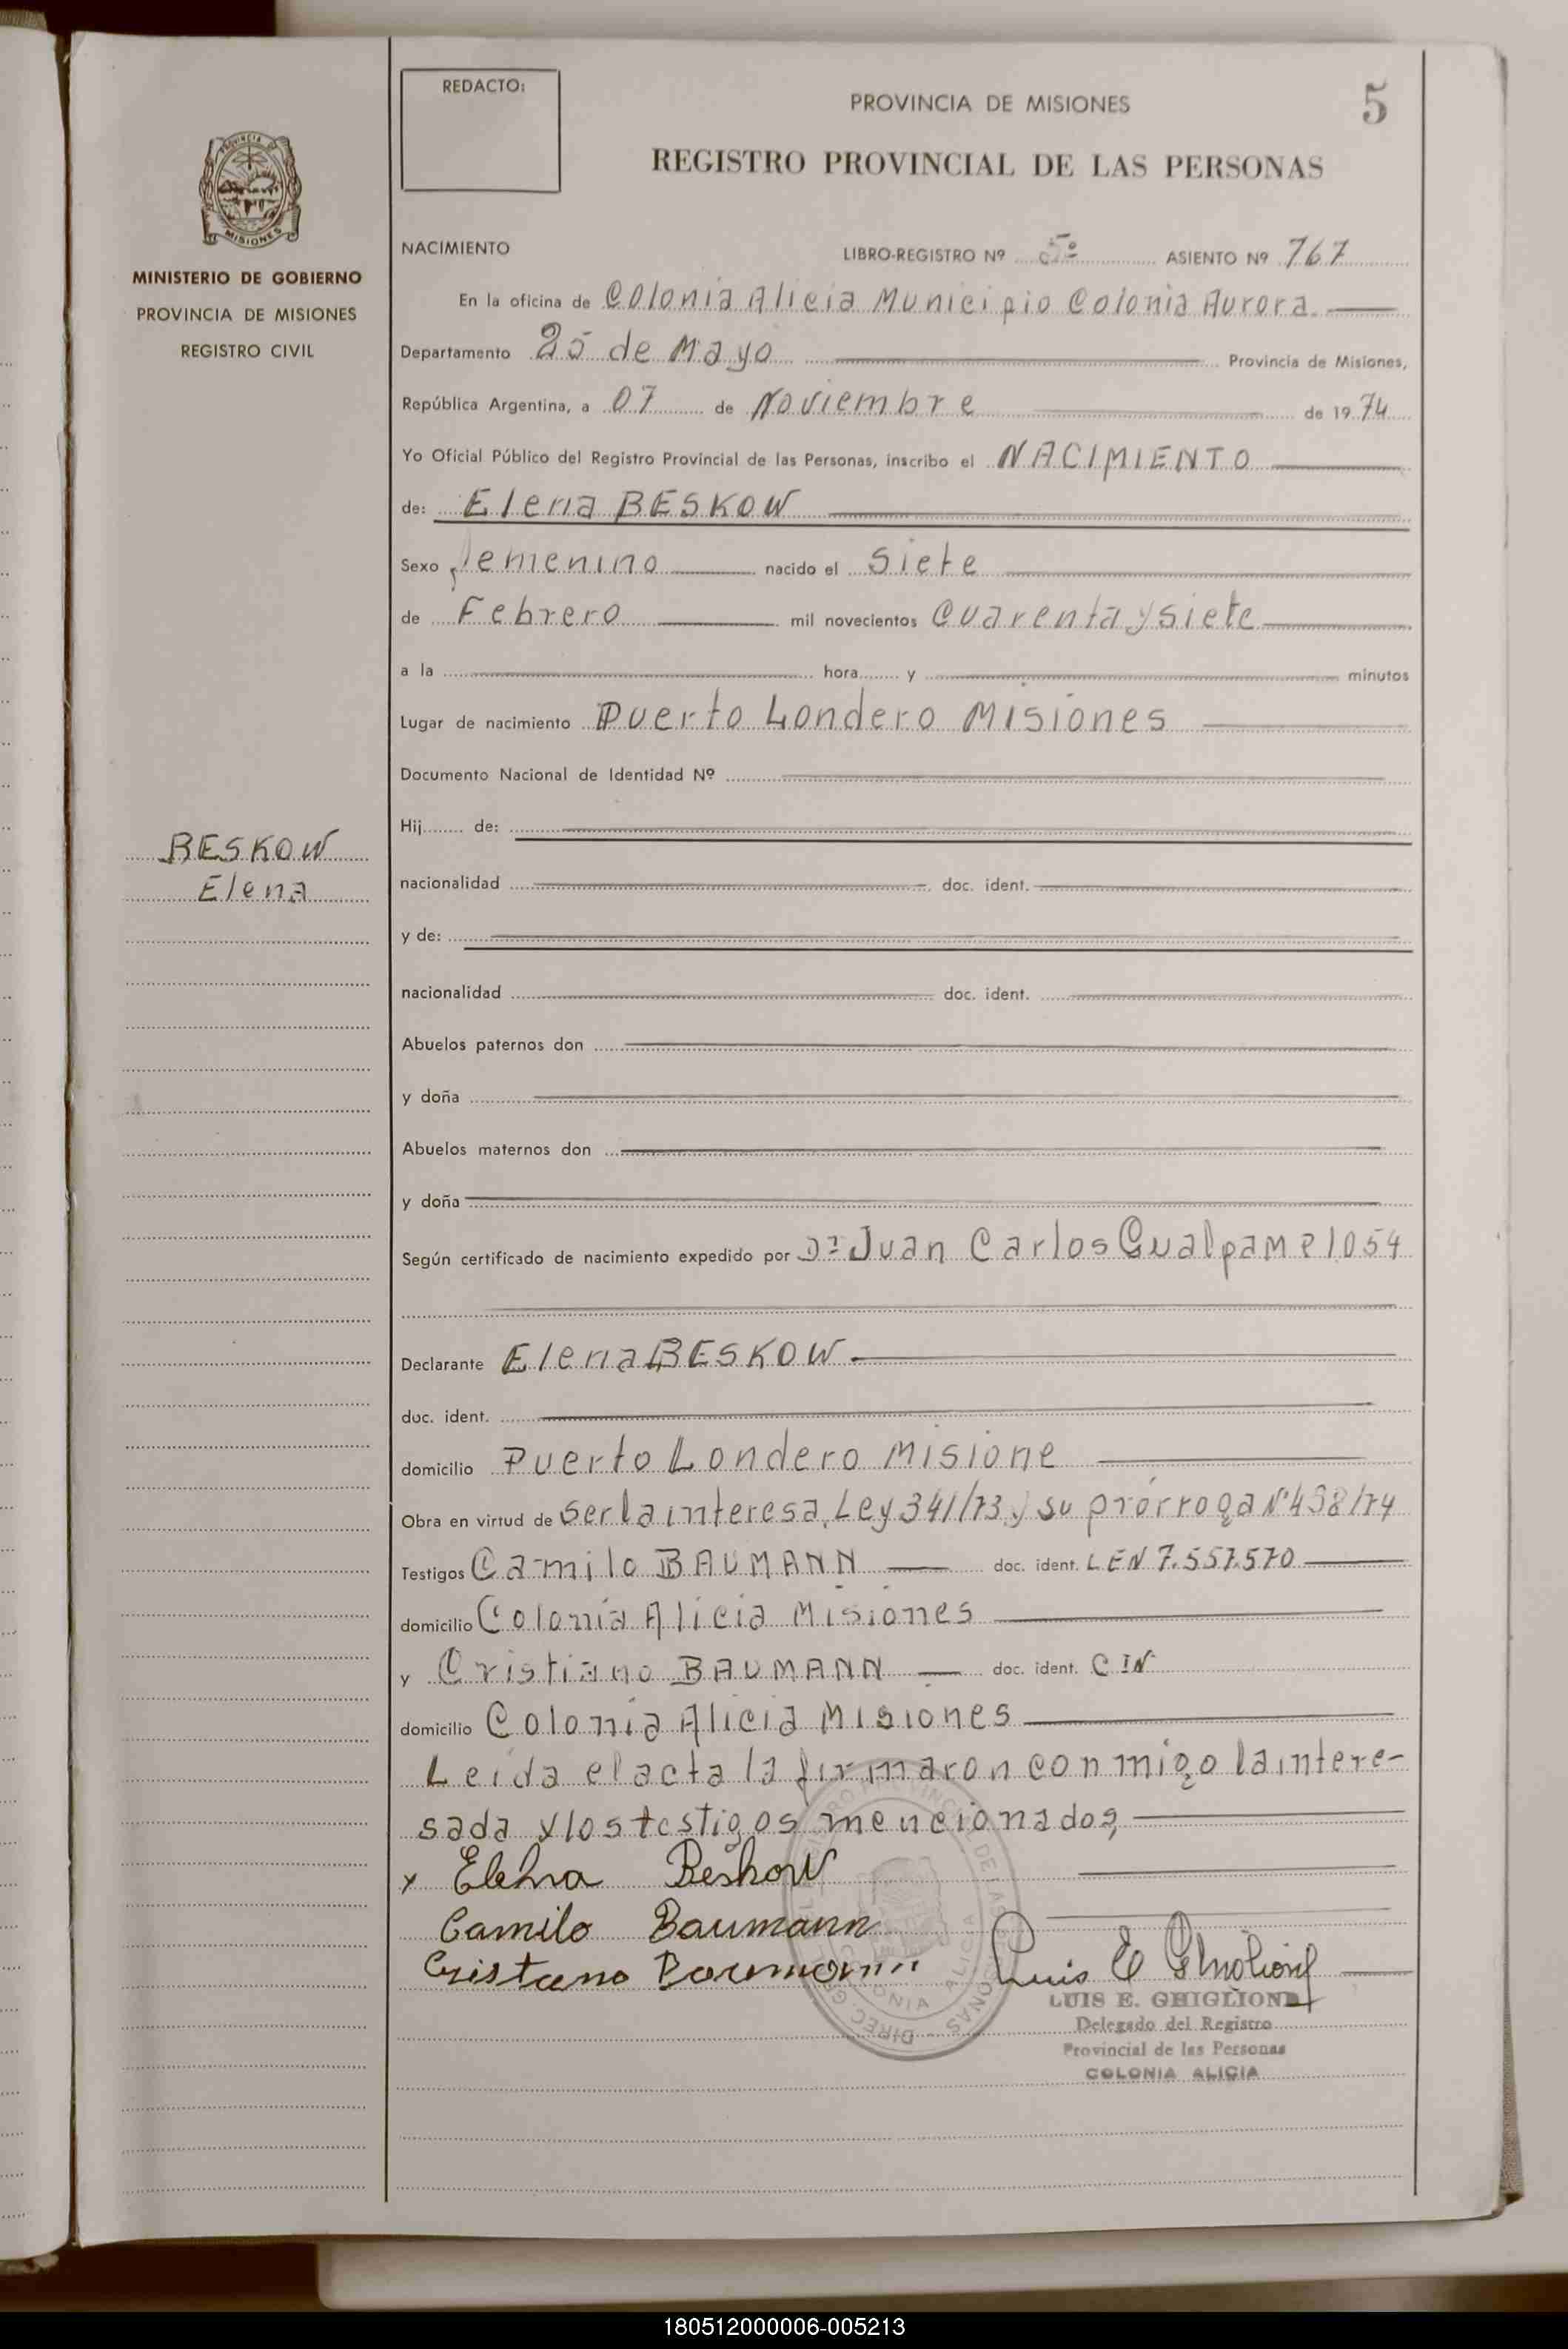 REDACTO:
PROVINCIA DE MISIONES
5
REGISTRO PROVINCIAL DE LAS PERSONAS
PROVINCIA DE
MISIONES
MINISTERIO DE GOBIERNO
PROVINCIA DE MISIONES
REGISTRO CIVIL
NACIMIENTO LIBRO-REGISTRO Nº 5º ASIENTO Nº 767
En la oficina de Colonia Alicia Municipio Colonia Aurora.
Departamento 25 de Mayo Provincia de Misiones,
República Argentina, a 07 de Noviembre de 1974
Yo Oficial Público del Registro Provincial de las Personas, inscribo el NACIMIENTO
de: Elena BESKOW
Sexo femenino nacido el Siete
de Febrero mil novecientos Cuarenta y siete
a la hora y minutos
Lugar de nacimiento Puerto Londero Misiones
Documento Nacional de Identidad Nº
Hij de:
BESKOW
Elena
nacionalidad doc. ident.
y de:
nacionalidad doc. ident.
Abuelos paternos don
y doña
Abuelos maternos don
y doña
Según certificado de nacimiento expedido por Dr Juan Carlos Gualpa MP 1054
Declarante Elena BESKOW
doc. ident.
domicilio Puerto Londero Misione
Obra en virtud de ser la interesa, Ley 341/73 y su prórroga Nº 498/74
Testigos Camilo BAUMANN doc. ident. LEN 7.557.570
domicilio Colonia Alicia Misiones
y Cristiano BAUMANN doc. ident. CIN
domicilio Colonia Alicia Misiones
Leida el acta la firmaron con migo la intere-
sada y los testigos mencionados,
x Elehna Beskow
Camilo Baumann
Cristano Baumann
Luis E Ghiglione
LUIS E. GHIGLIONE
Delegado del Registro
Provincial de las Personas
COLONIA ALICIA
180512000006-005213